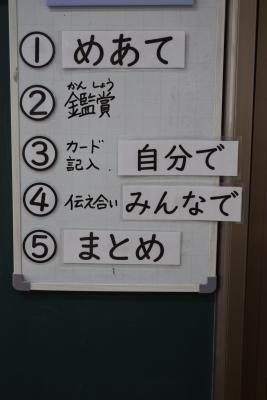 ① めあて
かんしょう
② 鑑賞
③ カード記入 自分で
④ 伝え合い みんなで
⑤ まとめ